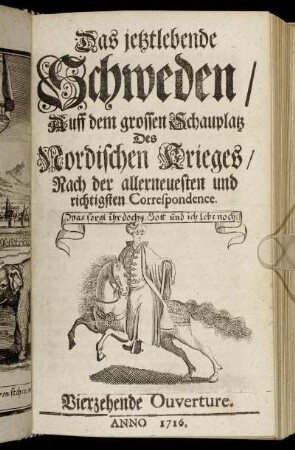 Das jetztlebende
Schweden/
Auff dem grossen Schauplatz
Des
Nordischen Krieges/
Nach der allerneuesten und
richtigsten Correspondence.
Was sorgt ihr doch, Gott und ich lebe noch.
Vierzehende Ouverture.
ANNO 1716.